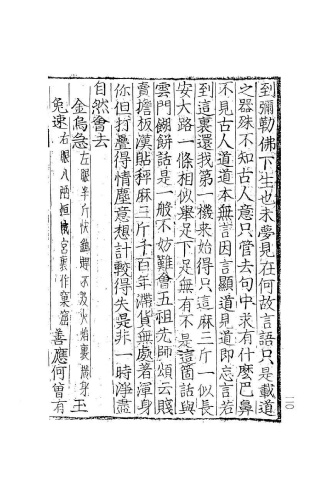 到彌勒佛下生也未夢見在何故言語只是載道
之器殊不知古人意只管去句中求有什麽巴鼻
不見古人道道本無言因言顯道見道即忘言若
到這裏還我第一機來始得只這麻三斤一似長
安大路一條相似舉足下足無有不是這箇話與
雲門餬餅話是一般不妨難會五祖先師頌云賤
賣擔板漢貼秤麻三斤千百年滯貨無處著渾身
你但打疊得情塵意想計較得失是非一時淨盡
自然會去
金烏急左眼半斤快鷂趕不及火焰裏橫身玉
兔速右眼八兩姮娥宮裏作窠窟善應何曾有
一一〇